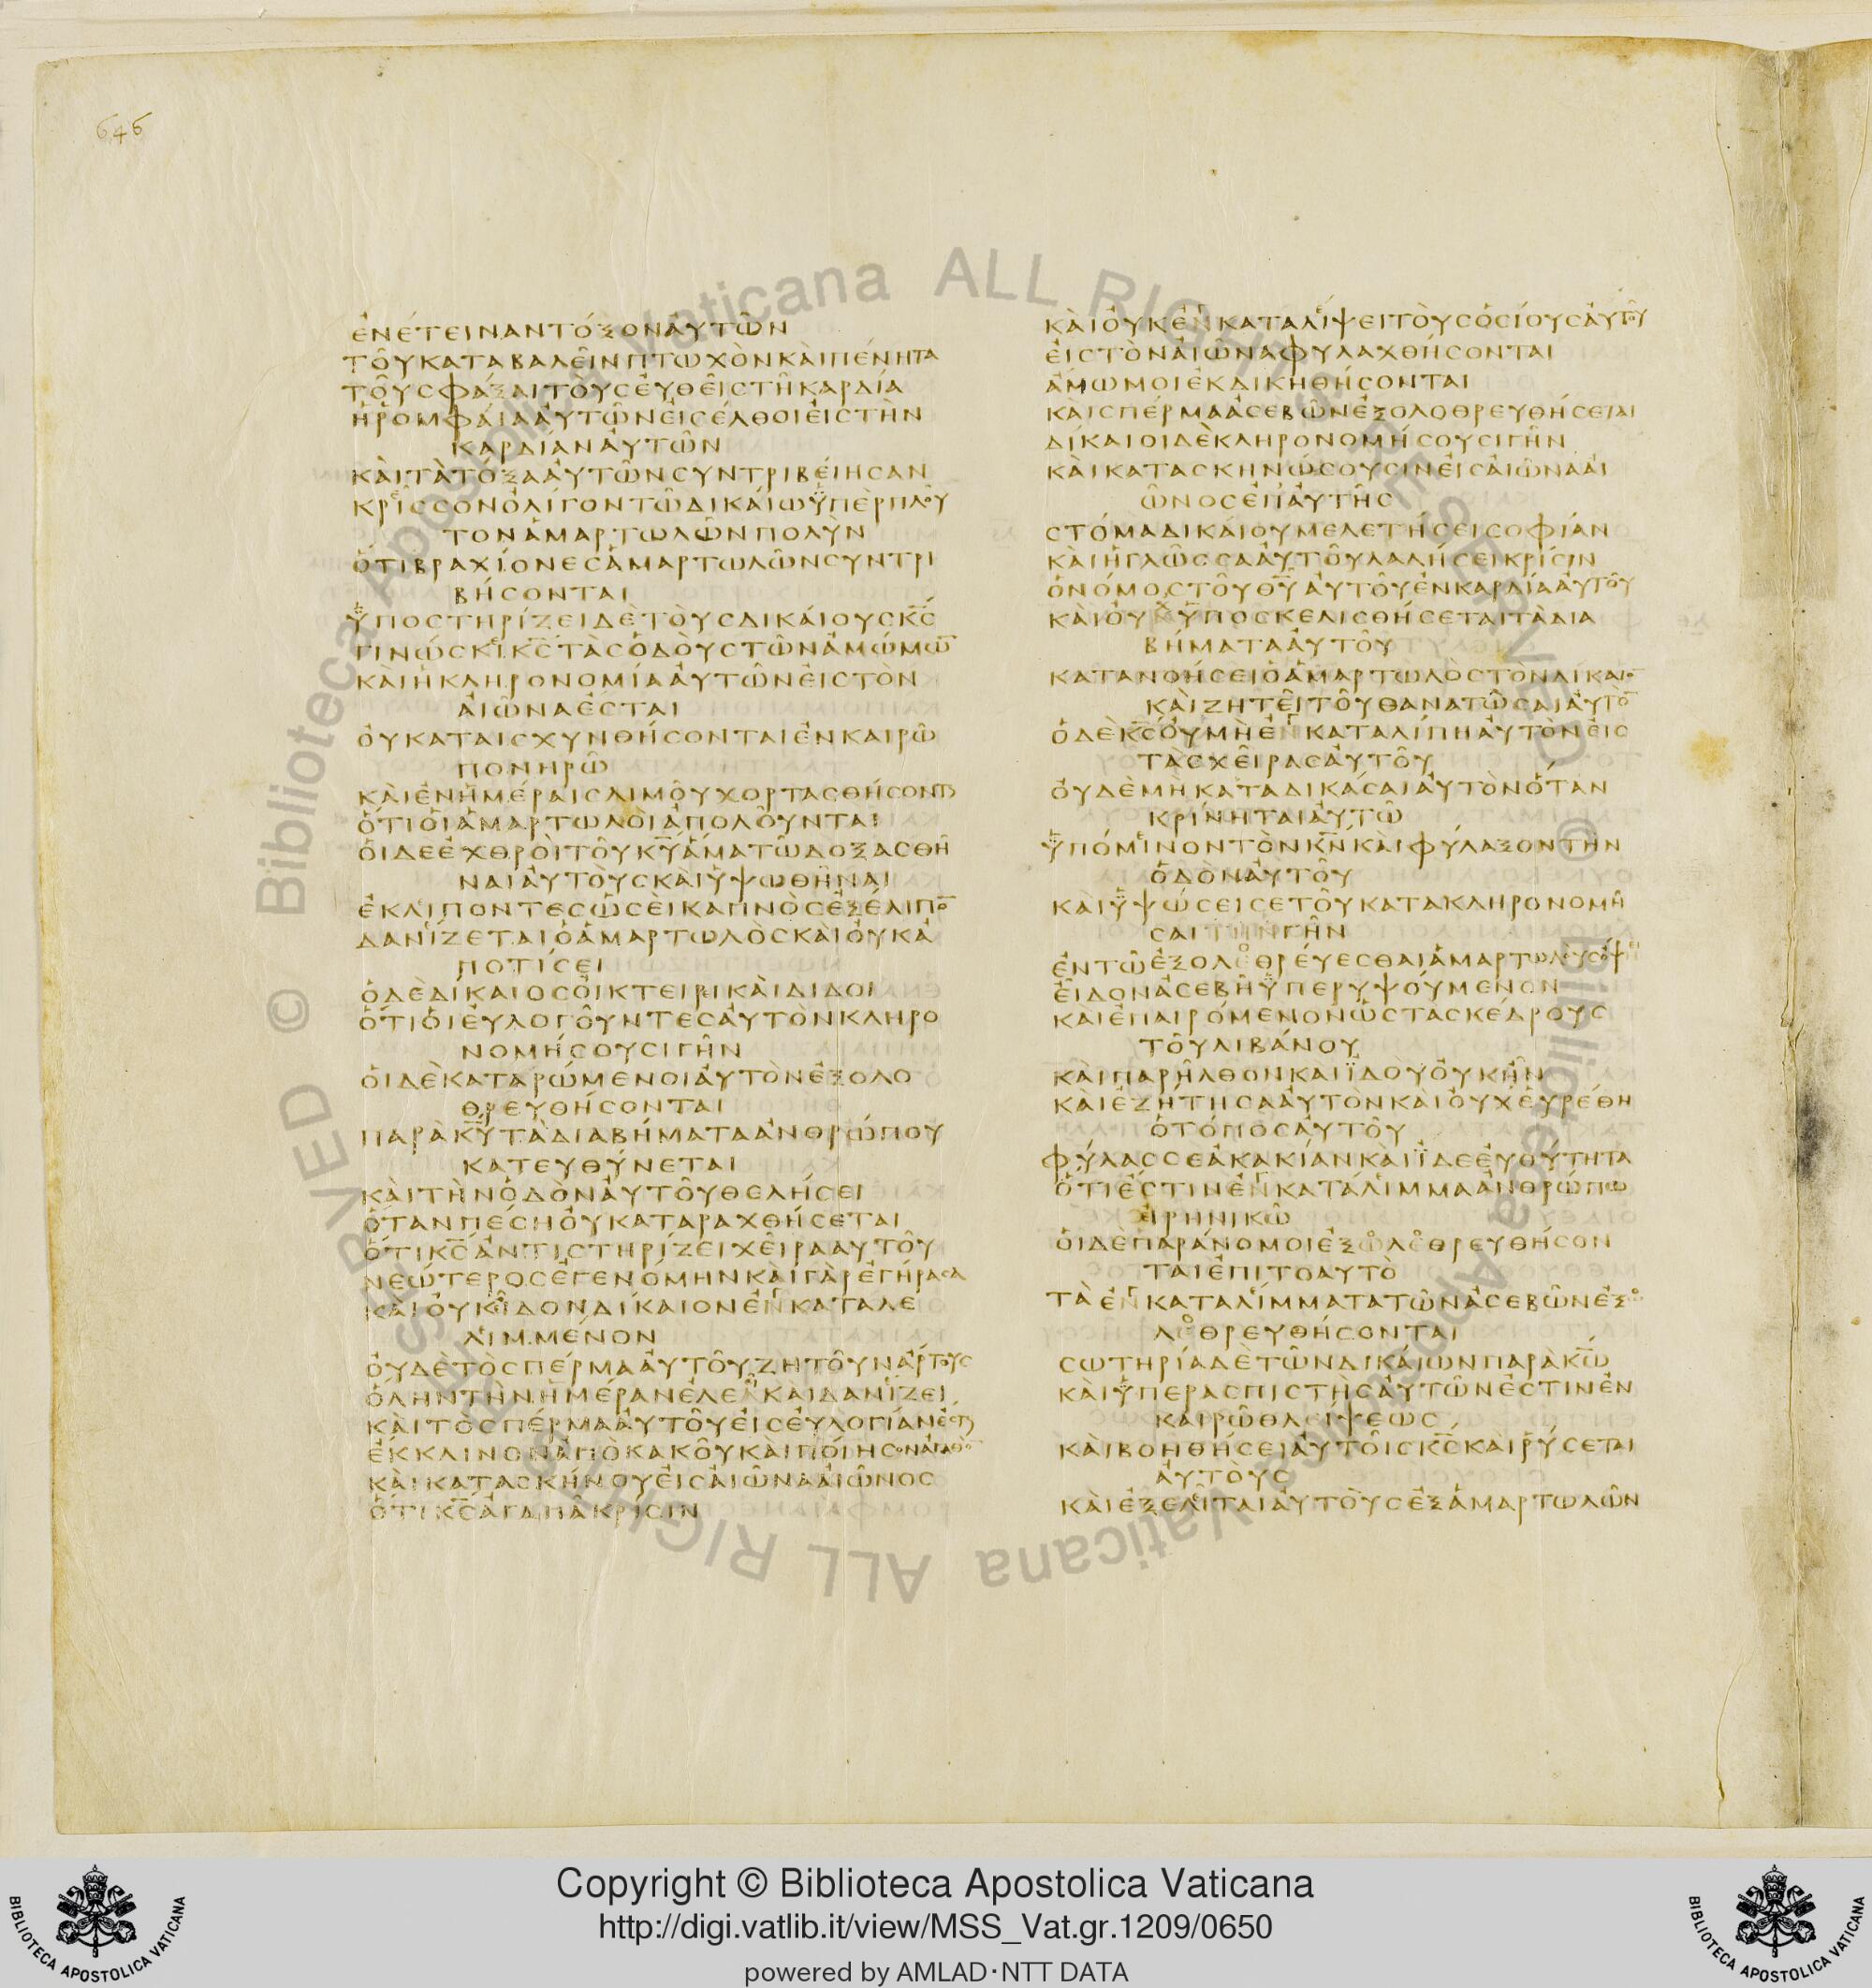 646
ἐνέτειναντόξοναὐτῶν
τοῦκαταβαλεῖνπτωχὸνκαὶπένητα
τοῦσφάξαιτοὺςεὐθεῖςτῇκαρδία
ἡρομφαίααὐτῶνεἰσέλθοιεἰςτὴν
καρδίαναὐτῶν
καὶτὰτόξααὐτῶνσυντριβείησαν
κρεῖσσονὀλίγοντῶδικαίωϋπὲρπλοῦ
τονἁμαρτωλῶνπολὺν
ὅτιβραχίονεςἁμαρτωλῶνσυντρι
βήσονται
ϋποστηρίζειδὲτοὺςδικαίουςκ̅ς̅
γινώσκικ̅ς̅τὰςὁδοὺςτῶνἀμώμω̅
καὶἡκληρονομίααὐτῶνεἰςτὸν
αἰῶναἔσται
οὐκαταισχυνθήσονταιἐνκαιρῶ
πονηρῶ
καὶἐνἡμέραιςλιμοῦχορτασθήσονται
ὅτιοἱἁμαρτωλοὶἀπολοῦνται
οἱδεἐχθροὶτοῦκ̅υ̅ἅματῶδοξασθῆ
ναιαὐτοὺςκαὶϋψωθῆναι
ἐκλιποντεςὡσεὶκαπνὸςἐξέλιπο̅
δανίζεταιὁἁμαρτωλὸςκαὶοὐκἀ
ποτίσει
ὁδὲδίκαιοςοἰκτειρικαὶδιδοι
ὅτιοἱεὐλογοῦντεςαὐτὸνκληρο
νομήσουσιγῆν
οἱδὲκαταρώμενοιαὐτὸνἐξολο
θρευθήσονται
παρὰκ̅υ̅τὰδιαβήματαἀνθρώπου
κατευθύνεται
καὶτὴνὁδὸναὐτοῦθελήσει
ὅτανπέσηοὐκαταραχθήσεται
ὅτικ̅ς̅ἀντιστηρίζειχεῖρααυτοῦ
νεώτεροςἐγενόμηνκαὶγὰρἐγήρασα
καὶοὐκεῖδονδίκαιονἐνκαταλε
λιμμένον
οὐδὲτὸσπέρμααὐτοῦζητοῦνάρτους
ὅληντὴνἡμέρανἐλεᾶκαὶδανίζει
καὶτὸσπέρμααὐτοῦεἰςεὐλογίανἔσται
ἔκκλινονἀπὸκακοῦκαὶποίησονἀγαθὸ̅
καὶκατασκήνουεἰςαἰῶνααἰῶνος
ὅτικ̅ς̅ἀγαπᾶκρίσιν
καὶοὐκἐνκαταλίψειτοὺςὁσίουςαὐτοῦ
εἰςτὸναἰῶναφυλαχθήσονται
ἄμωμοιἐκδικηθήσονται
καὶσπέρμαἀσεβῶνἐξολοθρευθήσεται
δίκαιοιδὲκληρονομήσουσιγῆν
καὶκατασκηνώσουσινεἰςαἰῶνααἰ
ῶνοςἐπαὐτῆς
στόμαδικαίουμελετήσεισοφίαν
καὶἡγλῶσσααὐτοῦλαλήσεικρίσιν
ὁνόμοςτοῦθ̅υ̅αὐτοῦἐνκαρδίααὐτοῦ
καὶοὐχϋποσκελισθήσεταιτὰδια
βήματααὐτοῦ
κατανοήσειὁἁμαρτωλὸςτὸνδίκαιο̅
καὶζητεῖτοῦθανατῶσαιαὐτὸ̅
ὁδὲκ̅ς̅οὐμὴἐνκαταλίπηαὐτὸνεἰς
τὰςχεῖραςαὐτοῦ
οὐδὲμὴκαταδικάσαιαὐτὸνὅταν
κρίνηταιαὐτῶ
ϋπόμινοντὸνκ̅ν̅καὶφύλαξοντὴν
ὁδὸναὐτοῦ
καὶϋψώσεισετοῦκατακληρονομῆ
σαιτηνγῆν
ἐντῶἐξολεθρέυεσθαιἁμαρτωλοὺςόψει
εἶδονἀσεβῆϋπερυψούμενον
καὶἐπαιρόμενονὡςτὰςκέδρους
τοῦλιβάνου
καὶπαρῆλθονκαιϊδοὺοὐκῆν
καὶἐζήτησααὐτὸνκαὶοὐχεὑρέθη
ὁτόποςαὐτοῦ
φύλασσεἀκακίανκαὶϊδεεὐθύτητα
ὅτιἐστινἐνκατάλιμμαἀνθρώπω
εἰρηνικῶ
οἱδὲπαράνομοιἐξολεθρευθήσον
ταιἐπιτοαυτὸ
τὰἐνκαταλίμματατῶνἀσεβῶνἐξο
λεθρευθήσονται
σωτηρίαδὲτῶνδικαίωνπαρὰκ̅ω̅
καὶϋπερασπιστὴςαὐτῶνἐστινἐν
καιρῶθλείψεως
καὶβοηθήσειαὐτοῖςκ̅ς̅καὶρύσεται
αὐτοὺς
καὶἐξελεῖταιαὐτοὺςἐξἁμαρτωλῶν
© Biblioteca Apostolica Vaticana ALL RIGHTS RESERVED © Biblioteca Apostolica Vaticana ALL RIGHTS RESERVED
Copyright © Biblioteca Apostolica Vaticana
http://digi.vatlib.it/view/MSS_Vat.gr.1209/0650
powered by AMLAD·NTT DATA
BIBLIOTECA APOSTOLICA VATICANA
BIBLIOTECA APOSTOLICA VATICANA